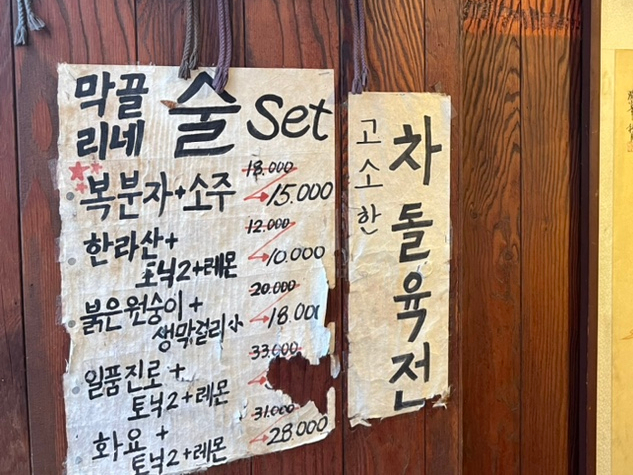 막끌리네 술 Set
18.000
복분자+소주 →15.000
12.000
한라산+
토닉2+레몬 →10.000
20.000
붉은원숭이+
생막걸리小 →18.000
33.000
일품진로+
토닉2+레몬
31.000
화요+
토닉2+레몬 →28.000
고소한
차돌육전